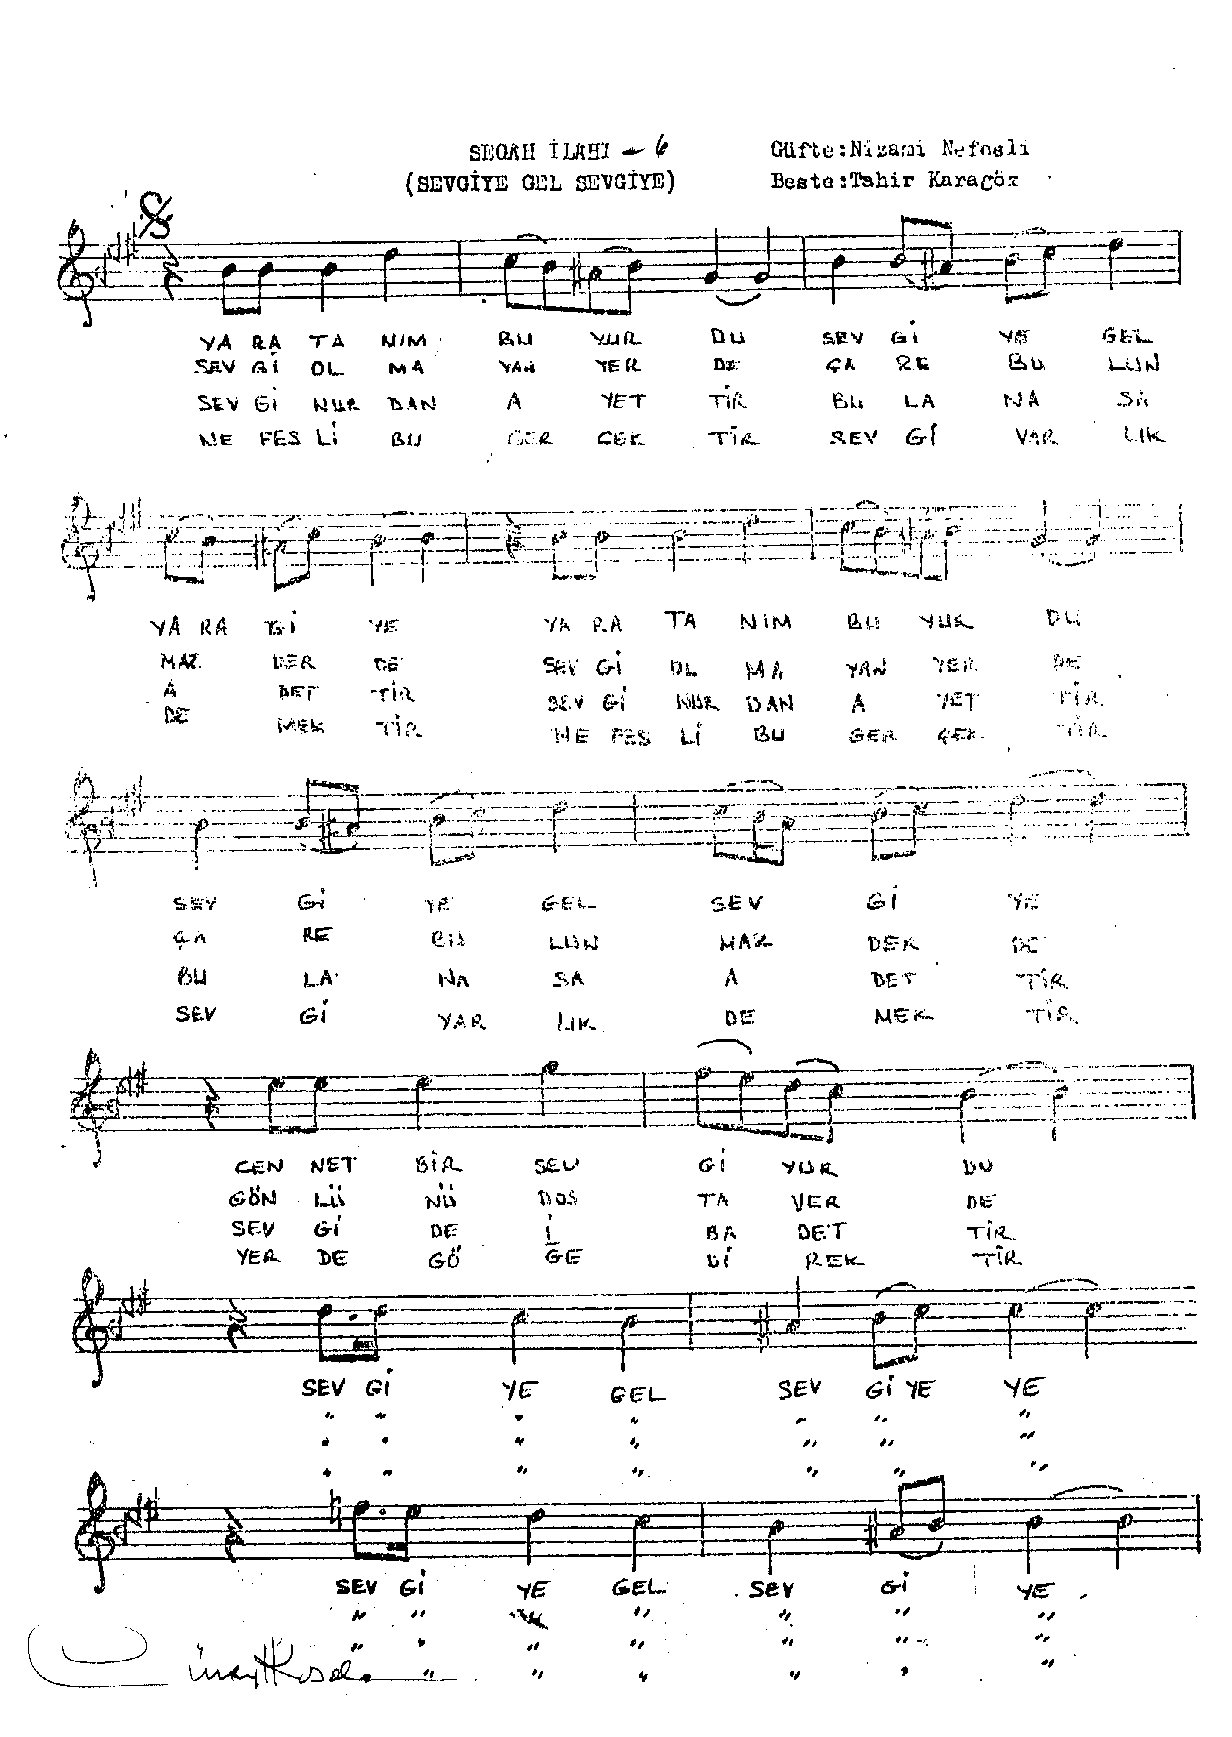 SEGAH İLAHI - 6
Güfte:Nizami Nefesli
(SEVGİYE GEL SEVGİYE)
Beste:Tahir Karagöz
YA RA TA NIM BU YUR DU SEV Gİ YE GEL
SEV Gİ OL MA YAN YER DE ÇA RE BU LUN
SEV Gİ NUR DAN A YET TİR BU LA NA SA
NE FES Lİ BU GER ÇEK TİR SEV Gİ VAR LIK
YA RA Gİ YE YA RA TA NIM BU YUR DU
MAZ DER DE SEV Gİ OL MA YAN YER DE
A DET TİR SEV Gİ NUR DAN A YET TİR
DE MEK TİR NE FES Lİ BU GER ÇEK TİR
SEV Gİ YE GEL SEV Gİ YE
ÇA RE BU LUN MAZ DER DE
BU LA NA SA A DET TİR
SEV Gİ VAR LIK DE MEK TİR
CEN NET BİR SEV Gİ YUR DU
GÖN LÜ NÜ DOS TA VER DE
SEV Gİ DE İ BA DET TİR
YER DE GÖ ĞE Dİ REK TİR
SEV Gİ YE GEL SEV Gİ YE YE
" " " " " " "
" " " " " " "
" " " " " " "
SEV Gİ YE GEL SEV Gİ YE
" " " " " "
" " " " " " "
" " " " " "